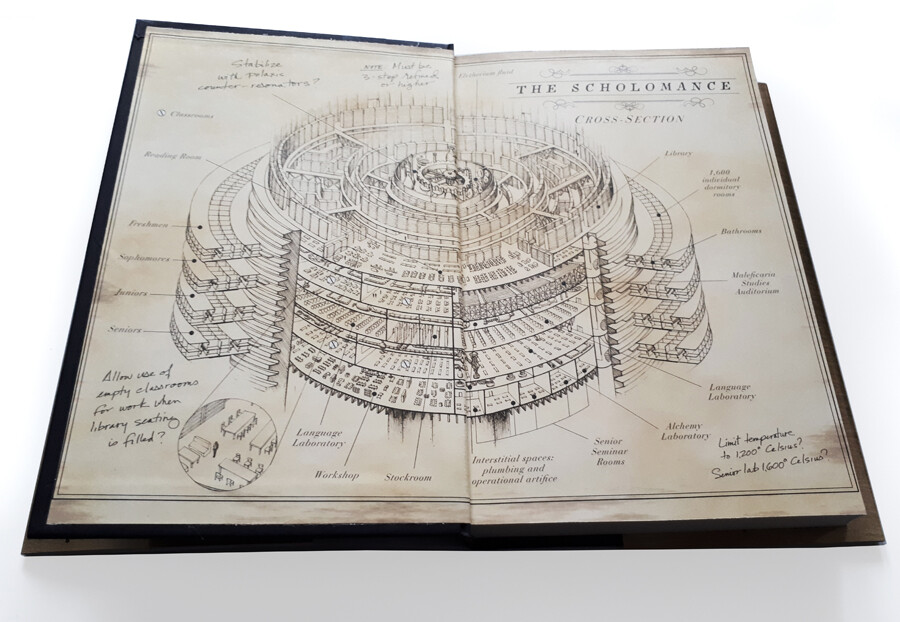 Stabilize
with
counter-resonators?
NOTE: Must be
3-step
or higher
THE SCHOLOMANCE
CROSS-SECTION
Classrooms
Reading Room
Freshmen
Sophomores
Juniors
Seniors
Library
1,600
individual
dormitory
rooms
Bathrooms
Maleficaria
Studies
Auditorium
Allow use of
empty classrooms
for work when
library seating
is filled?
Language
Laboratory
Workshop
Stockroom
Interstitial spaces:
plumbing and
operational artifice
Senior
Seminar
Rooms
Alchemy
Laboratory
Language
Laboratory
Limit temperature
to 1,200° Celsius?
Senior lab 1,600° Celsius?